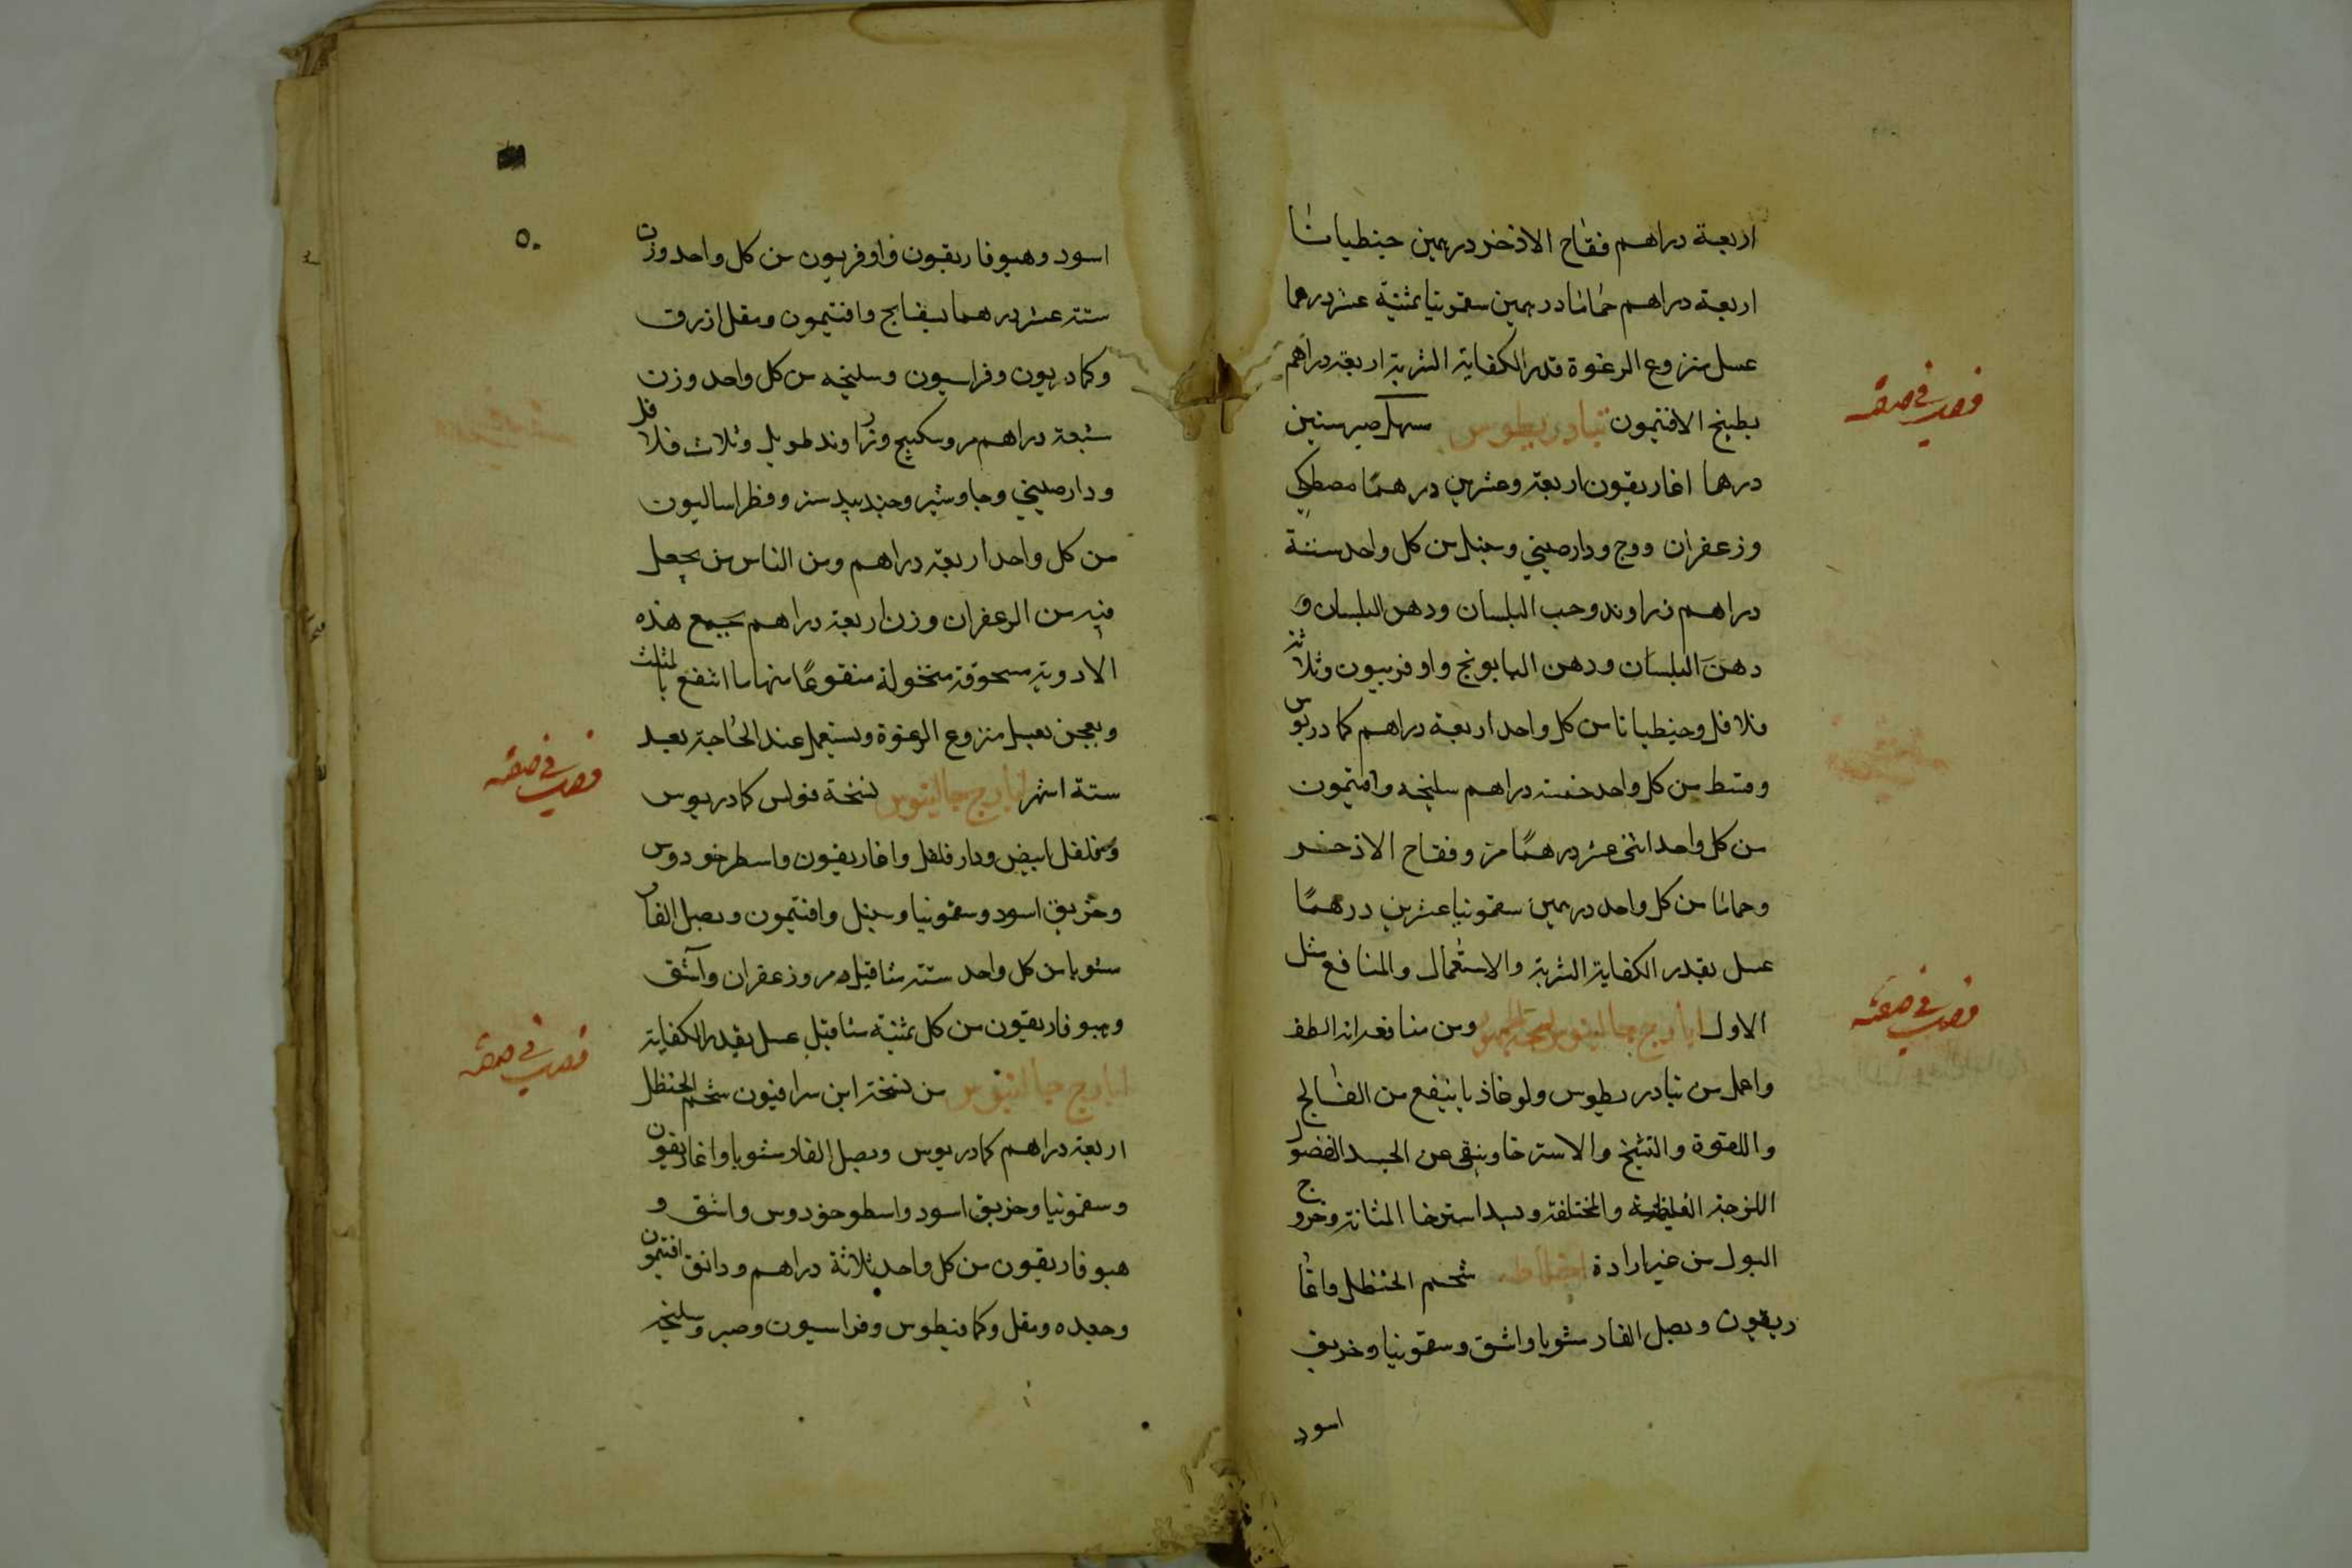 اربعة دراهم فقاح الاذخر درهمين جنطيانا
اربعة دراهم حماما درهمين سقمونيا ثمنية عشر درهما
عسل منزوع الرغوة قدر الكفاية الشربة اربعة دراهم
بطبخ الافتيمون تيادريطوس سهل صبر ستين
درهما اغاريقون اربعة وعشرين درهمًا مصطكي
وزعفران ووج ودارصيني وسنبل من كل واحد ستة
دراهم زراوند وحب البلسان ودهن البلسان و
دهن البلسان ودهن البابونج واوفربيون وثلاثة
فلافل وجنطيانا من كل واحد اربعة دراهم كمادريوس
وقسط من كل واحد خمسة دراهم سليخه وافتيمون
من كل واحد اثنى عشر درهمًا مر وفقاح الاذخر
وحماما من كل واحد درهمين سقمونيا عشرين درهمًا
عسل بقدر الكفاية الشربة والاستعمال والمنافع مثل
الاول ايارج جالينوس ومن منافعه انه الطف
واعمل من تيادريطوس ولوغاذيا ينفع من الفالج
واللقوة والتشنج والاسترخا وينقى عن الجسد الفضول
اللزجة الغليظة والمختلفة ويسد استرخا المثانة وخروج
البول من غير ارادة شحم الحنظل واغا
ريقون وبصل الفار مشويا واشق وسقمونيا وخربق
اسود
فصل في صفة
فصل في صفة
٥٠
اسود وهيوفاريقون واوفربيون من كل واحد وزن
ستة عشر درهما بسفايج وافتيمون ومقل ازرق
وكمادريون وفراسيون وسليخه من كل واحد وزن
سبعة دراهم مر وسكبينج وزراوند طويل وثلاث فلافل
ودارصيني وجاوشير وجندبيدستر وفطراساليون
من كل واحد اربعة دراهم ومن الناس من يجعل
فيه من الزعفران وزن اربعة دراهم يجمع هذه
الادوية مسحوقة منخولة منقوعًا منها ما انتفع بالمثلث
ويعجن بعسل منزوع الرغوة ويستعمل عند الحاجة بعد
ستة اشهر ايارج جالينوس نسخة فولس كمادريوس
وفلفل ابيض ودارفلفل واغاريقون واسطوخودوس
وخربق اسود وسقمونيا وسنبل وافتيمون وبصل الفار
مشويا من كل واحد ستة مثاقيل مر وزعفران واشق
وهيوفاريقون من كل ثمنية مثاقيل عسل بقدر الكفاية
ايارج جالينوس من نسخة ابن سرافيون شحم الحنظل
اربعة دراهم كمادريوس وبصل الفار مشويا واغاريقون
وسقمونيا وخربق اسود واسطوخودوس واشق و
هيوفاريقون من كل واحد ثلاثة دراهم ودانق افتيمون
وجعده ومقل وكمافيطوس وفراسيون وصبر وسليخه
فصل في صفة
فصل في صفة